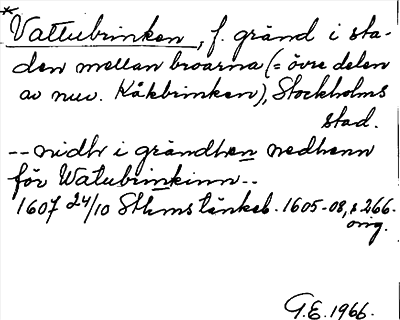 *
Vattubrinken, f. gränd i sta-
den mellan broarna (= övre delen
av nuv. Kåkbrinken), Stockholms
stad.
-- nidhr i grändhen nedhenn
för Watubrinkinn --
1607 24/10 Sthms tänkeb. 1605-08, s 266.
orig.
G.E. 1966.